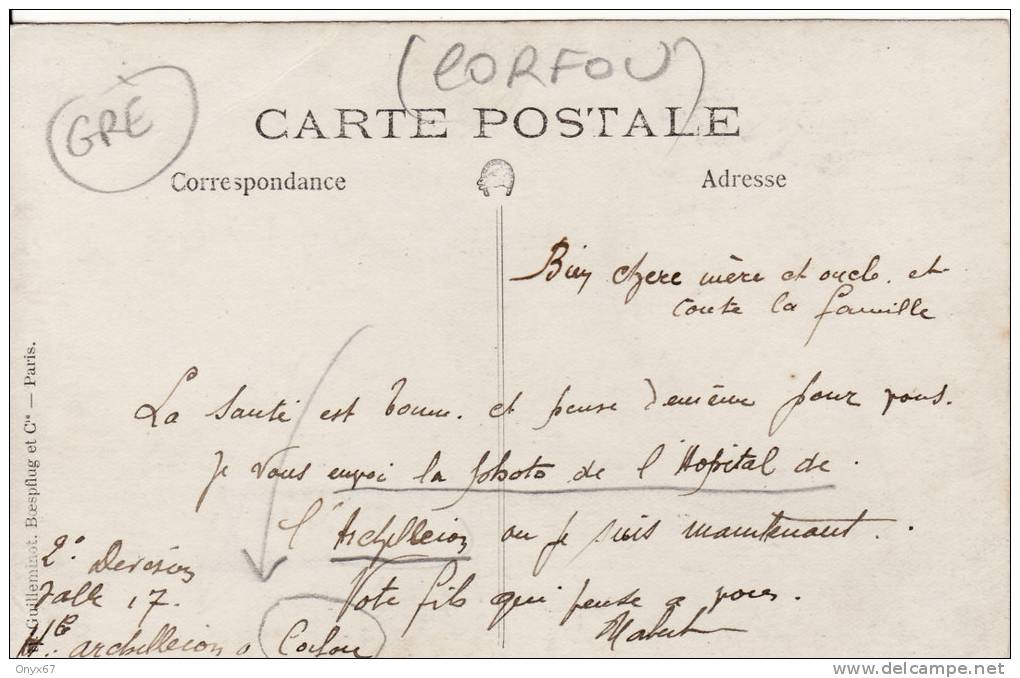 (CORFOU)
GRE
CARTE POSTALE
Correspondance
Adresse
Bien chere mère et oncle. et
toute la famille
La santé est bonne. et pense de même pour vous.
Je vous envoi la photo de l'Hopital de
l'Archilleion ou je suis maintenant.
Vote fils qui pense a vous.
2e Division
Salle 17.
He. archilleion a Corfou
Guilleminot, Bœspflug et Cie — Paris.
Onyx67
www.delcampe.net